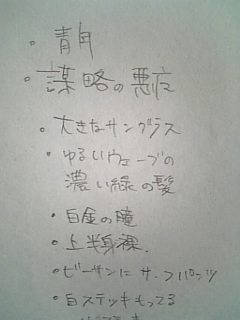 ・青角
・謀略の悪魔
・大きなサングラス
・ゆるいウェーブの
濃い緑の髪
・白金の瞳
・上半身裸
・ビーサンにサーフパンツ
・白ステッキもってる